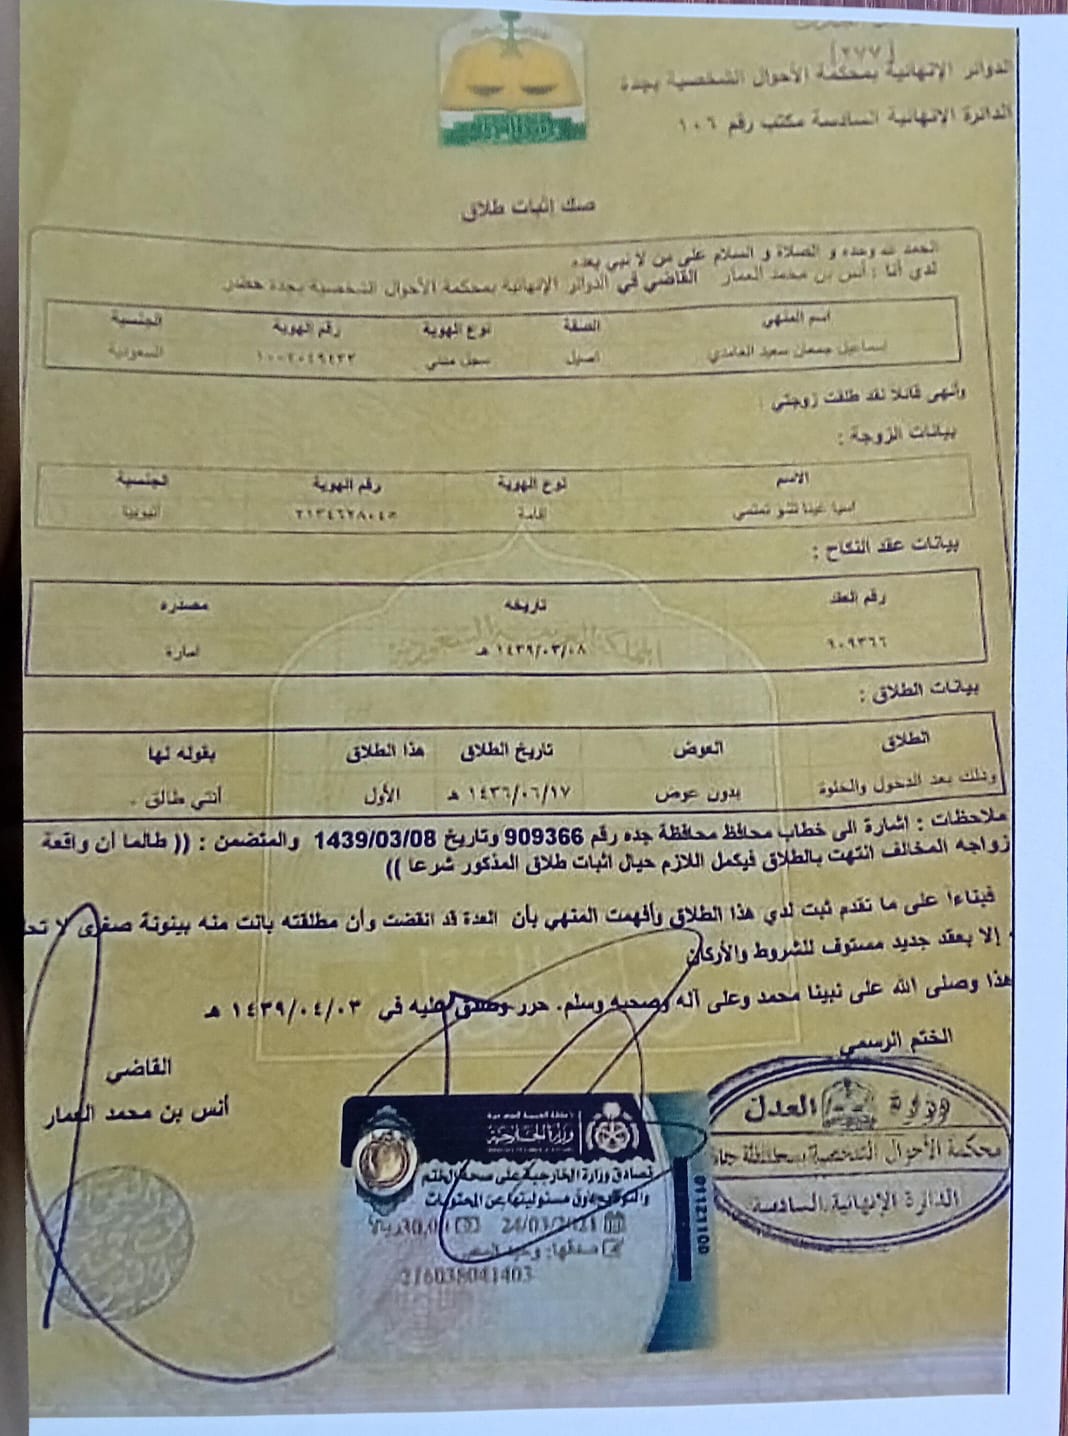 (٢٧٧)
الدوائر الإنهائية بمحكمة الأحوال الشخصية بجدة
الدائرة الإنهائية السادسة مكتب رقم ١٠٦
صك إثبات طلاق
الحمد لله وحده و الصلاة و السلام على من لا نبي بعده
لدي أنا : أنس بن محمد العمار القاضي في الدوائر الإنهائية بمحكمة الأحوال الشخصية بجدة حضر
اسم المنهي الصفة نوع الهوية رقم الهوية الجنسية
إسماعيل جمعان سعيد الغامدي أصيل سجل مدني السعودية
وأنهى قائلا لقد طلقت زوجتي :
بيانات الزوجة :
الاسم نوع الهوية رقم الهوية الجنسية
اسيا إقامة
بيانات عقد النكاح :
رقم العقد تاريخه مصدره
٩٠٩٣٦٦ ١٤٣٩/٠٣/٠٨ هـ امارة
بيانات الطلاق :
الطلاق العوض تاريخ الطلاق هذا الطلاق بقوله لها
وذلك بعد الدخول والخلوة بدون عوض ١٤٣٦/٠٦/١٧ هـ الأول أنتي طالق .
ملاحظات : اشارة الى خطاب محافظ محافظة جده رقم 909366 وتاريخ 1439/03/08 والمتضمن : (( طالما أن واقعة
زواجه المخالف انتهت بالطلاق فيكمل اللازم حيال اثبات طلاق المذكور شرعا ))
فبناءا على ما تقدم ثبت لدي هذا الطلاق وأفهمت المنهي بأن العدة قد انقضت وأن مطلقته بانت منه بينونة صغرى لا
إلا بعقد جديد مستوف للشروط والأركان
هذا وصلى الله على نبينا محمد وعلى آله وصحبه وسلم. حرر وصدق عليه في ١٤٣٩/٠٤/٠٣ هـ
الختم الرسمي
القاضي
أنس بن محمد العمار
وزارة العدل
محكمة الأحوال الشخصية بمحافظة جدة
الدائرة الإنهائية السادسة
وزارة الخارجية
تصادق وزارة الخارجية على صحة الختم
والتوقيع دون مسئوليتها عن المحتويات
24/03/2021 30,00 ريال
صدقها:
216038041403
00112110